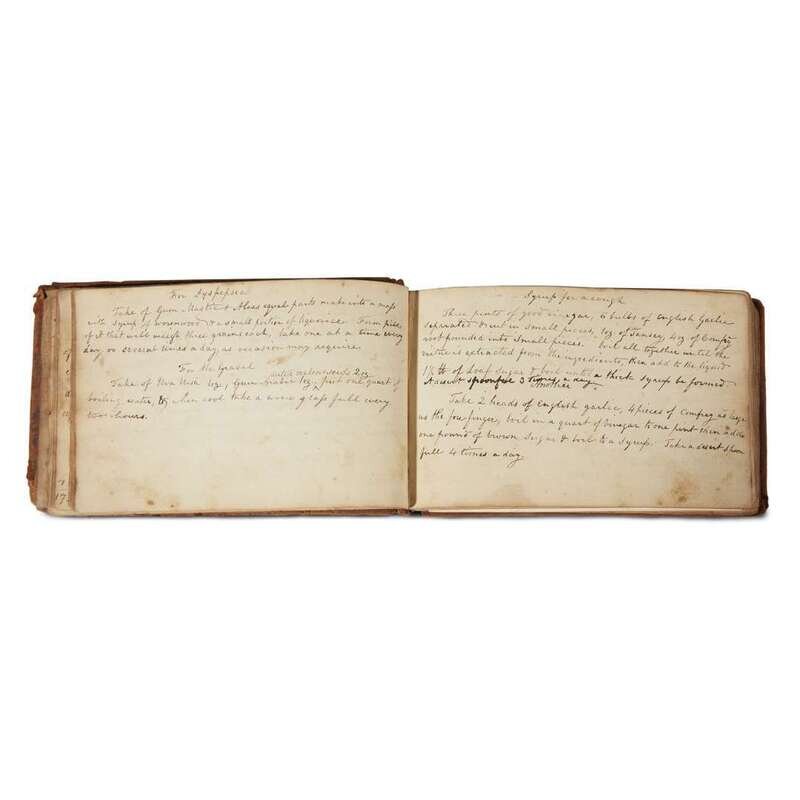 For Dyspepsia
Take of Gum Mastic & Aloes equal parts make into a mass
with syrup of wormwood & a small portion of liquorice. Form pills
of it that will weigh three grains each, take one at a time every
day or several times a day, as occasion may require
For the Gravel
water melon seeds 2 oz
Take of Uva Ursi 1oz, Gum Arabic 1oz, put one quart of
boiling water, & when cool take a wine glass full every
two hours.
17
Syrup for a cough
Three pints of good vinegar, 6 bulbs of English Garlic
separated & cut in small pieces, 1oz of Tansey, 4oz of Comfrey
root pounded into small pieces. boil all together until the
virtue is extracted from the ingredients, then add to the liquid
1½ ℔ of Loaf Sugar & boil until a thick syrup be formed
A desert spoonful 3 times a day
Another
Take 2 heads of English garlic, 4 pieces of comfrey as large
as the fore finger, boil in a quart of vinegar to one pint then add
one pound of brown Sugar & boil to a Syrup. Take a desert spoon
full 4 times a day